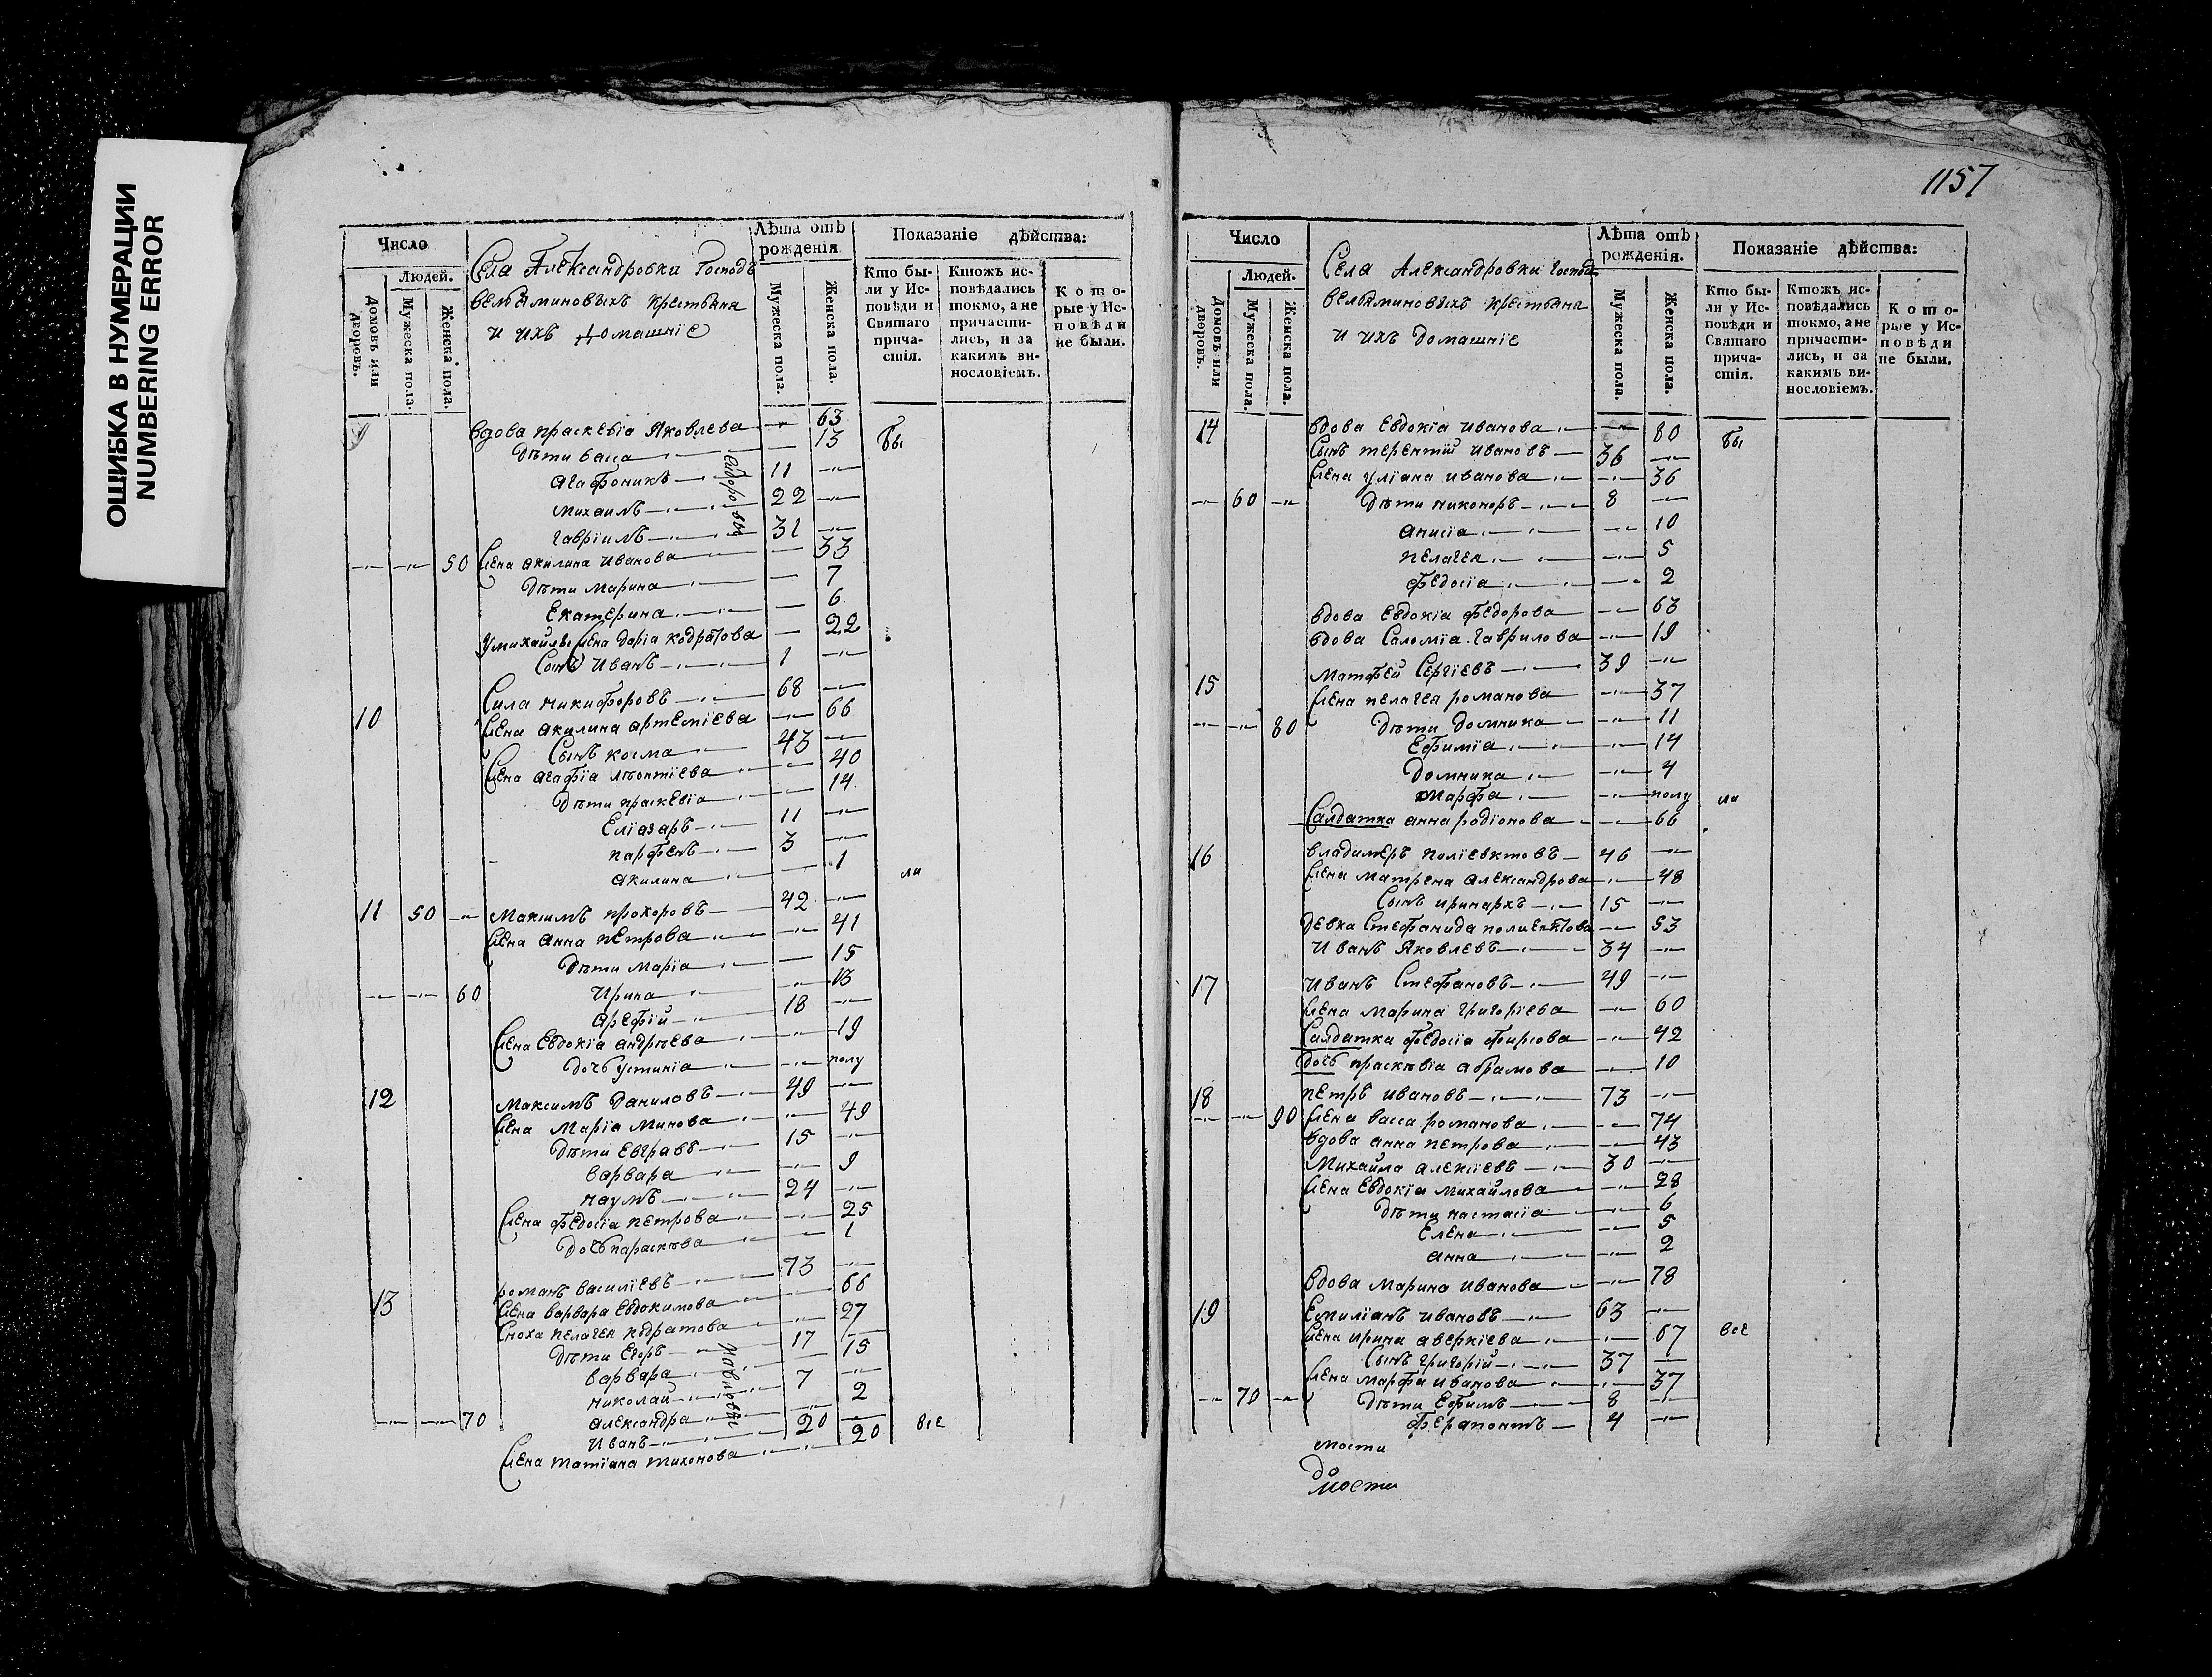 ОШИБКА В НУМЕРАЦИИ
NUMBERING ERROR
Число
Людей.
Домовъ или дворовъ.
Мужеска пола.
Женска пола.
Села Александровки Господъ
Вельяминовыхъ крестьяня
и ихъ домашніе
Лѣта отъ рожденія
Мужеска пола.
Женска пола.
Показаніе дѣйства:
Кто были у Исповѣди и Святаго причастія.
Ктожъ исповѣдались токмо, а не причастились, и за какимъ винословіемъ.
Которые у Исповѣди не были.
9 вдова праскевіа Яковлева 63 бы
дѣти васса 13
агафоникъ 11
михаилъ 22
гавріилъ 31
сидоровы
50 жена акилина Иванова 33
дѣти марина 7
Екатерина 6
У михайлы жена даріа кодратова 22
сынъ иванъ 1
10 Сила никифоровъ 68
жена акилина артеміева 66
сынъ косма 43
жена агафіа леонтіева 40
дѣти праскевіа 14
Еліазаръ 11
парфенъ 3
акилина 1 ли
11 50 Максимъ прохоровъ 42
жена анна петрова 41
дѣти маріа 15
60 ирина 13
арефій 18
жена Евдокіа андрѣева 19
дочь устиніа полу
12 Максимъ даниловъ 49
жена Маріа Минова 49
дѣти Евгравъ 15
варвара 9
наумъ 24
жена федосіа петрова 25
дочь параскѣва 1
13 романъ василіевъ 73
жена варвара Евдокимова 66
сноха пелагея кодратова 27
дѣти Егоръ 17
варвара 15
николай 7
александра 2
павловы
70 иванъ 20
жена татіана тихонова 20 все
1157
Число
Людей.
Домовъ или дворовъ.
Мужеска пола.
Женска пола.
Села Александровки господъ
вельяминовыхъ крестьяня
и ихъ домашніе
Лѣта отъ рожденія.
Мужеска пола.
Женска пола.
Показаніе дѣйства:
Кто были у Исповѣди и Святаго причастія.
Ктожъ исповѣдались токмо, а не причастились, и за какимъ винословіемъ.
Которые у Исповѣди не были.
14 вдова Евдокіа иванова 80 бы
сынъ терентій ивановъ 36
жена уліана иванова 36
60 дѣти никоноръ 8
анисіа 10
пелагея 5
федосіа 2
вдова Евдокіа федорова 63
вдова Саломіа гаврилова 19
15 матфей Сергіевъ 39
жена пелагея романова 37
80 дѣти домника 11
Ефиміа 14
домника 4
марфа полу ли
Салдатка анна родіонова 66
16 владимеръ поліевктовъ 46
жена матрена александрова 48
сынъ иринархъ 15
девка Стефанида полиевктова 53
Иванъ Яковлевъ 34
17 иванъ Стефановъ 49
жена марина григоріева 60
Салдатка федосіа фирсова 42
дочь прасковіа абрамова 10
18 петръ ивановъ 73
90 жена васса романова 74
вдова анна петрова 43
михайла алексіевъ 30
жена Евдокіа михайлова 28
дѣти настасіа 6
Елена 5
анна 2
вдова марина иванова 78
19 Емиліанъ ивановъ 63
жена ирина аверкіева 67 все
сынъ григорій 37
жена марфа иванова 37
70 дѣти Ефимъ 8
ферапонтъ 4